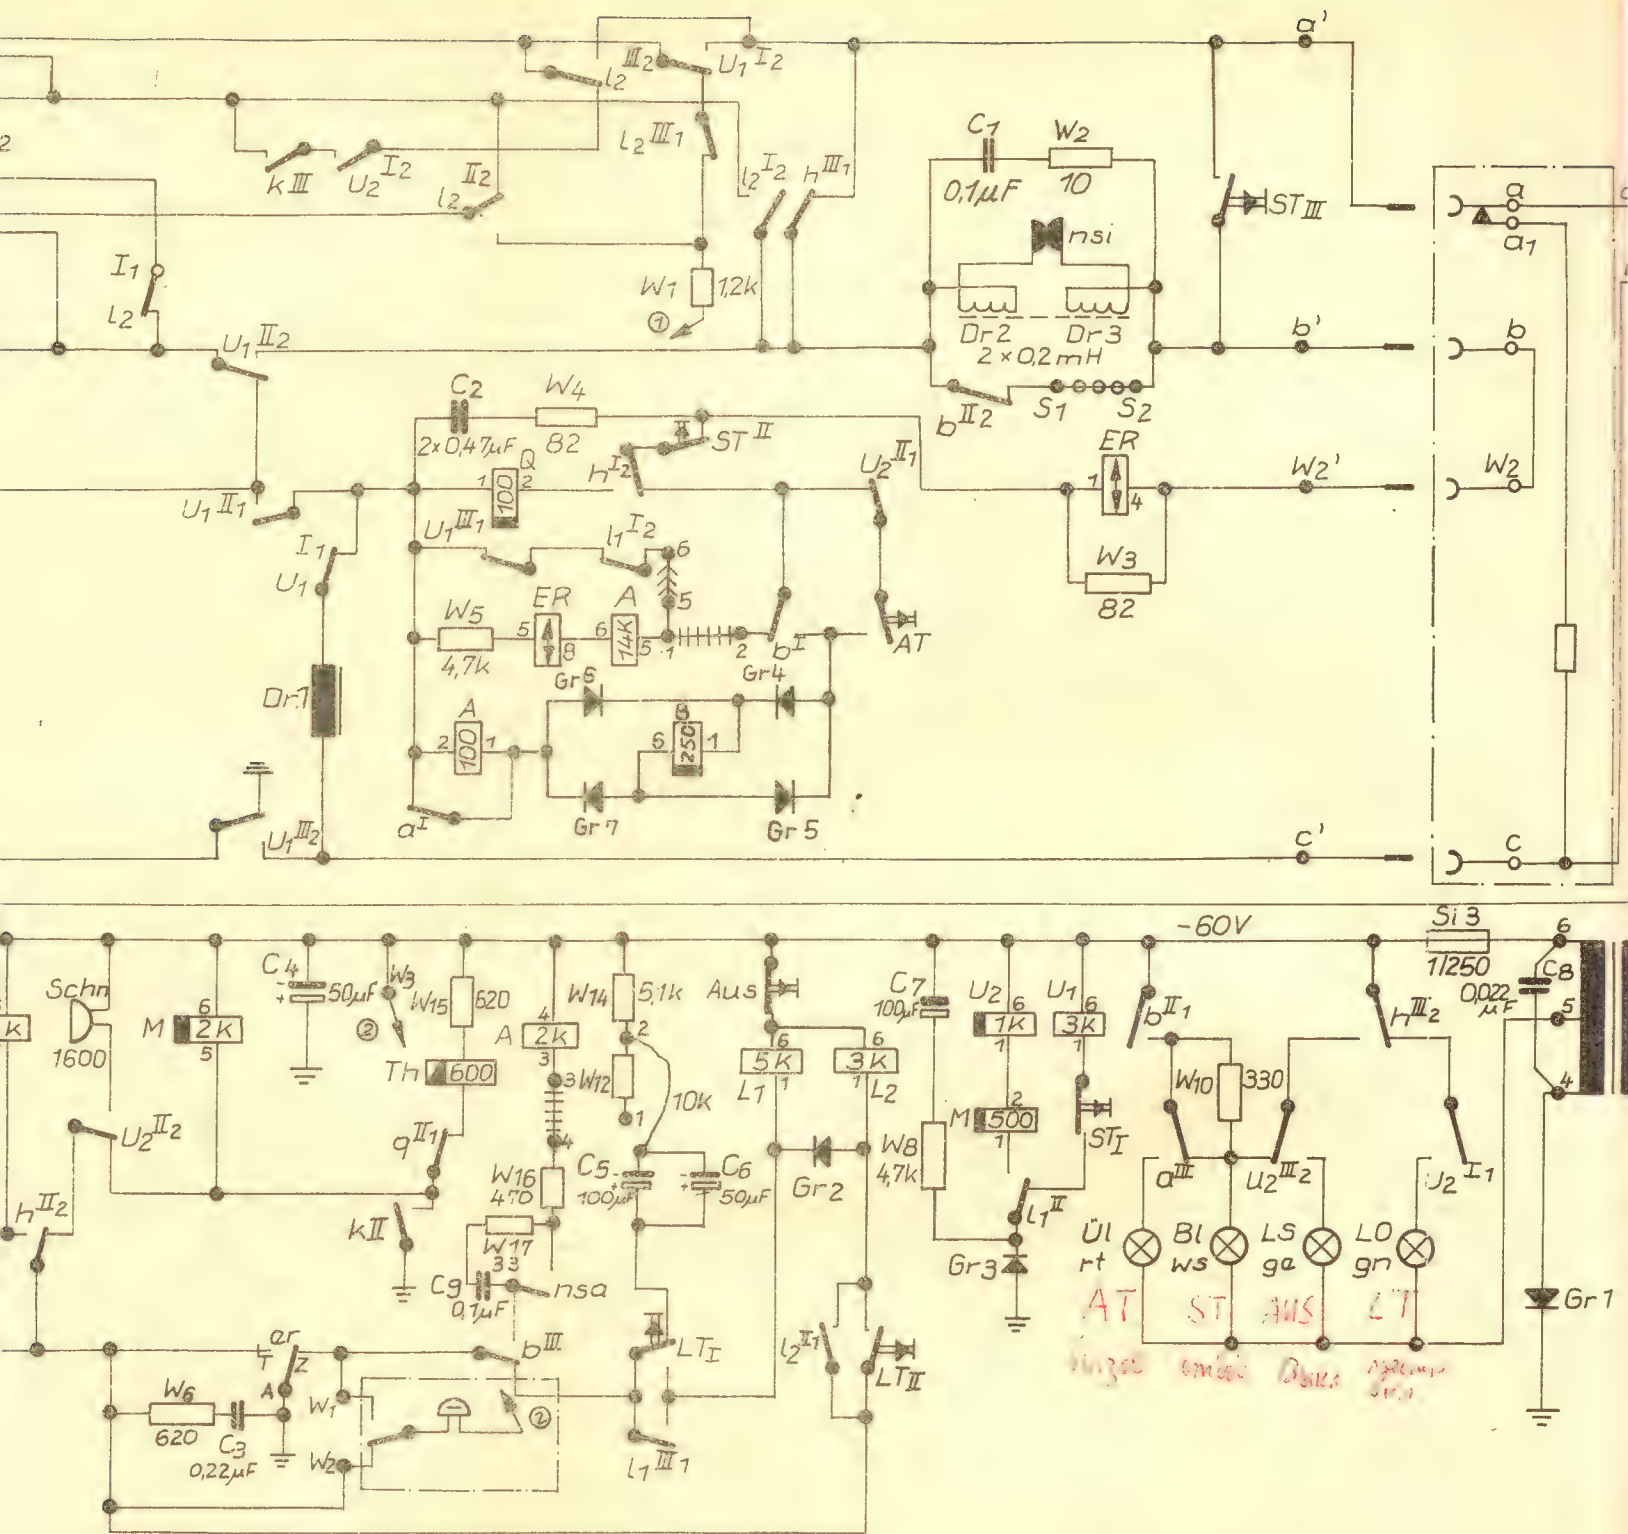 a'
III2 U1 I2
l2
l2 III1
2
k III U2 I2
II2
l2
l2 I2 h III1
C1 W2
0,1µF 10
ST III
a
a1
nsi
I1
l2
W1 1,2k
①
Dr2 Dr3
2×0,2mH
b'
b
U1 II2
C2 W4
2×0,47µF 82
ST II
b II2 S1 S2
ER
U2 II1
h I2
Q
1 100 2
1 4
W2'
W2
U1 II1
U1 III1 l1 I2
6
I1
U1
W3
82
5
W5 ER A
4,7k 5 8 6 14k 5 1 2 b I AT
Gr6 Gr4
Dr1
A
2 100 1
B
6 250 1
a I
Gr7 Gr5
U1 III2
c'
c
-60V
Si3
1/250
6
C8
0,022
µF
5
4
k
Schn
1600
M
6
2k
5
C4
- + 50µF
W3
②
W15 620
Th 600
4
A 2k
3
3
4
W14 5,1k
2
W12
1
10k
Aus
6
5k
1
L1
6
3k
1 L2
C7
100µF
U2 6
1k
U1 6
3k
1
b II1
h III2
M 2
500
1
ST I
W10 330
U2 II2
q II1
W16
470
C5 - +
100µF
C6 - +
50µF
Gr2
W8
4,7k
a III U2 III2 U2 I1
h II2
k II
W17
33
C9
0,1µF
nsa
l1 II
Gr3
Ül
rt
Bl
ws
LS
ge
LO
gn
Gr1
AT ST AUS LT
er
T Z
A
b III
LT I
l2 II1
LT II
W6
620
C3
0,22µF
W1
W2
②
l1 III1